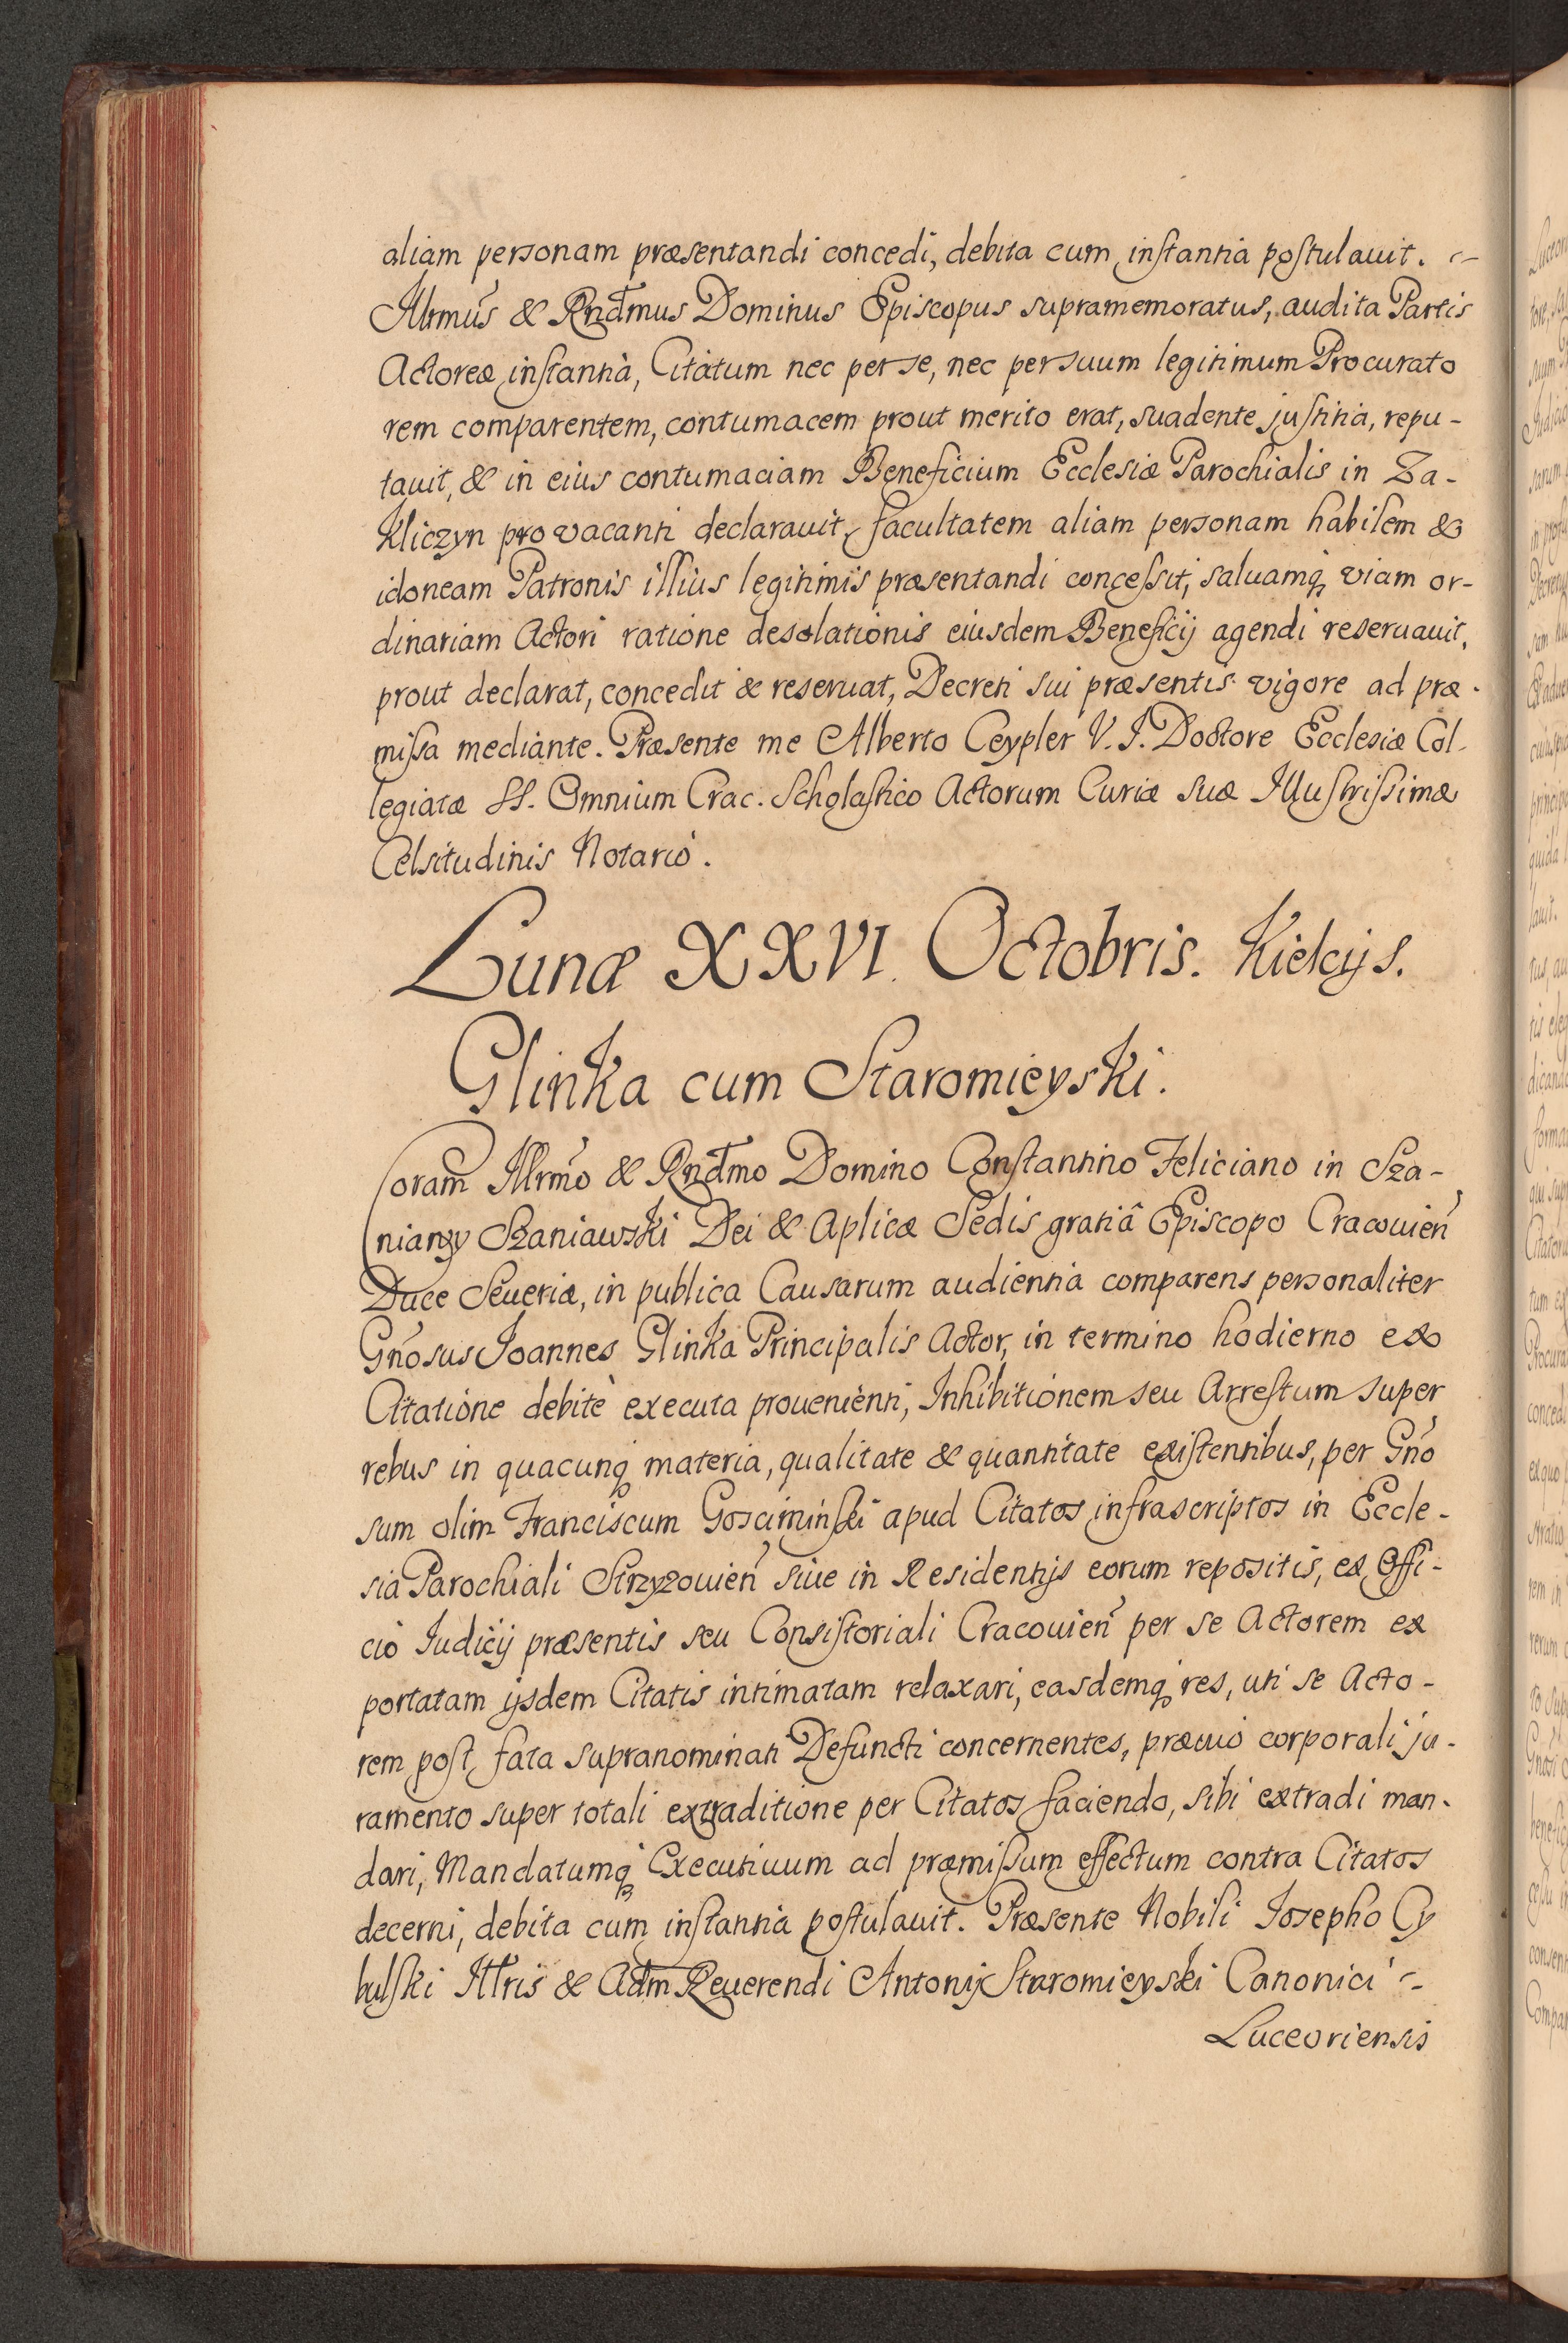 aliam personam præsentandi concedi, debita cum instantia postulauit.
Illrmus & Rndmus Dominus Episcopus supramemoratus, audita Partis
Actoreæ instantia, Citatum nec per se, nec per suum legitimum Procurato
rem comparentem, contumacem prout merito erat, suadente justitia, repu-
tauit, & in eius contumaciam Beneficium Ecclesiæ Parochialis in Za-
kliczyn pro vacanti declarauit, facultatem aliam personam habilem &
idoneam Patronis illius legitimis præsentandi concessit, saluamq viam or-
dinariam Actori ratione desolationis eiusdem Beneficij agendi reseruauit,
prout declarat, concedit & reseruat, Decreti sui præsentis vigore ad præ-
missa mediante. Præsente me Alberto Ceypler V. J. Doctore Ecclesiæ Col-
legiatæ SS. Omnium Crac. Scholastico Actorum Curiæ suæ Illustrissimæ
Celsitudinis Notario.
Lunæ XXVI. Octobris. Kielcijs.
Glinka cum Staromieyski.
Coram Illrmo & Rndmo Domino Constantino Feliciano in Sza-
niawy Szaniawski Dei & Aplicæ Sedis gratiâ Episcopo Cracouien
Duce Seueriæ, in publica Causarum audientia comparens personaliter
Gnosus Joannes Glinka Principalis Actor, in termino hodierno ex
Citatione debitè executa prouenienti, Inhibitionem seu Arrestum super
rebus in quacunq materia, qualitate & quantitate existentibus, per Gno
sum olim Franciscum Gosciminski apud Citatos infrascriptos in Eccle-
sia Parochiali Strzyzouien siue in Residentijs eorum repositis, ex Offi-
cio Iudicij præsentis seu Consistoriali Cracouien per se Actorem ex
portatam ijsdem Citatis intimatam relaxari, easdemq res, uti se Acto-
rem post fata supranominati Defuncti concernentes, præuio corporali ju-
ramento super totali extraditione per Citatos faciendo, sibi extradi man-
dari, Mandatumq Executiuum ad præmissum effectum contra Citatos
decerni, debita cum instantia postulauit. Præsente Nobili Josepho Cy
bulski Illris & Adm Reuerendi Antonij Staromieyski Canonici
Luceoriensis